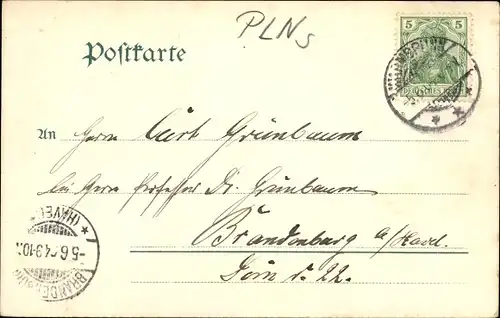 PLNs
5 5
DEUTSCHES REICH
Postkarte
An Herrn Curt Grünbaum
bei Herrn Professor Dr. Grünbaum
Brandenburg a/Havel.
22.
(HAVEL)
-5.6.
BRANDENBURG